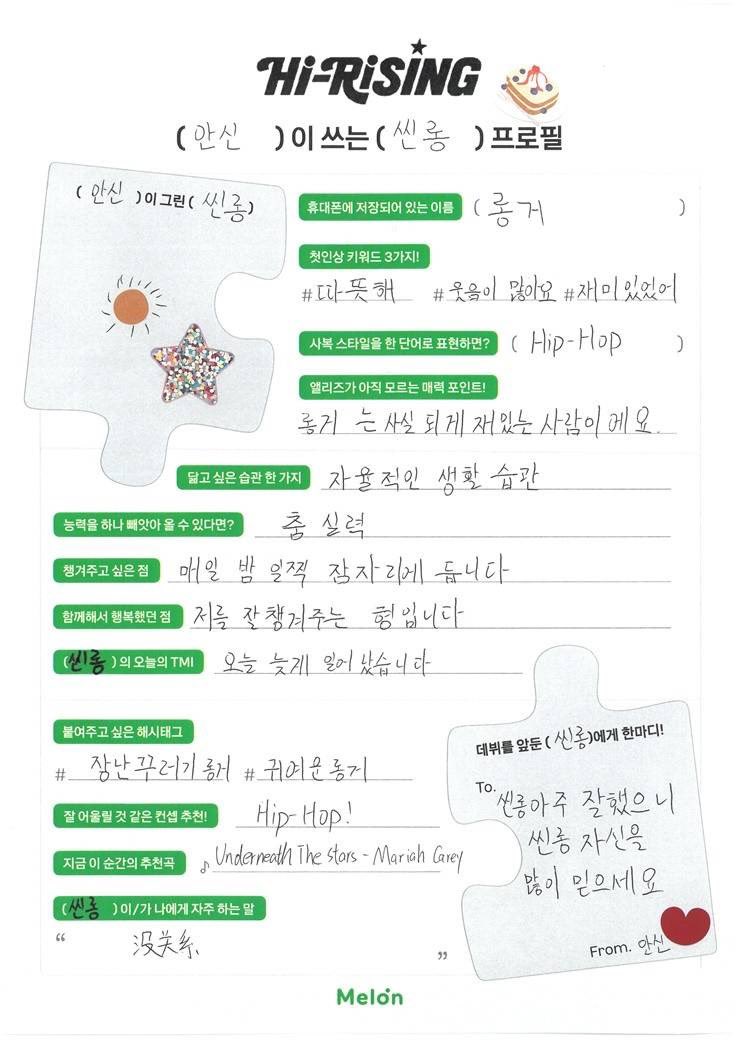 Hi-RiSiNG
( 안신 ) 이 쓰는 ( 씬롱 ) 프로필
( 안신 ) 이 그린 ( 씬롱 )
휴대폰에 저장되어 있는 이름 ( 롱거 )
첫인상 키워드 3가지!
#따뜻해 #웃음이 많아요 #재미있었어
사복 스타일을 한 단어로 표현하면? ( Hip-Hop )
앨리즈가 아직 모르는 매력 포인트!
롱거 는 사실 되게 재밌는 사람이에요.
닮고 싶은 습관 한 가지 자율적인 생활 습관
능력을 하나 빼앗아 올 수 있다면? 춤 실력
챙겨주고 싶은 점 매일 밤 일찍 잠자리에 듭니다
함께해서 행복했던 점 저를 잘 챙겨주는 형입니다
( 씬롱 ) 의 오늘의 TMI 오늘 늦게 일어났습니다
붙여주고 싶은 해시태그
# 장난꾸러기 롱거 # 귀여운 롱거
잘 어울릴 것 같은 컨셉 추천! Hip-Hop!
지금 이 순간의 추천곡 ♪ Underneath The stars - Mariah Carey
( 씬롱 ) 이/가 나에게 자주 하는 말
“ 没关系 ”
데뷔를 앞둔 ( 씬롱 )에게 한마디!
To. 씬롱아주 잘했으니
씬롱 자신을
많이 믿으세요
From. 안신
Melon